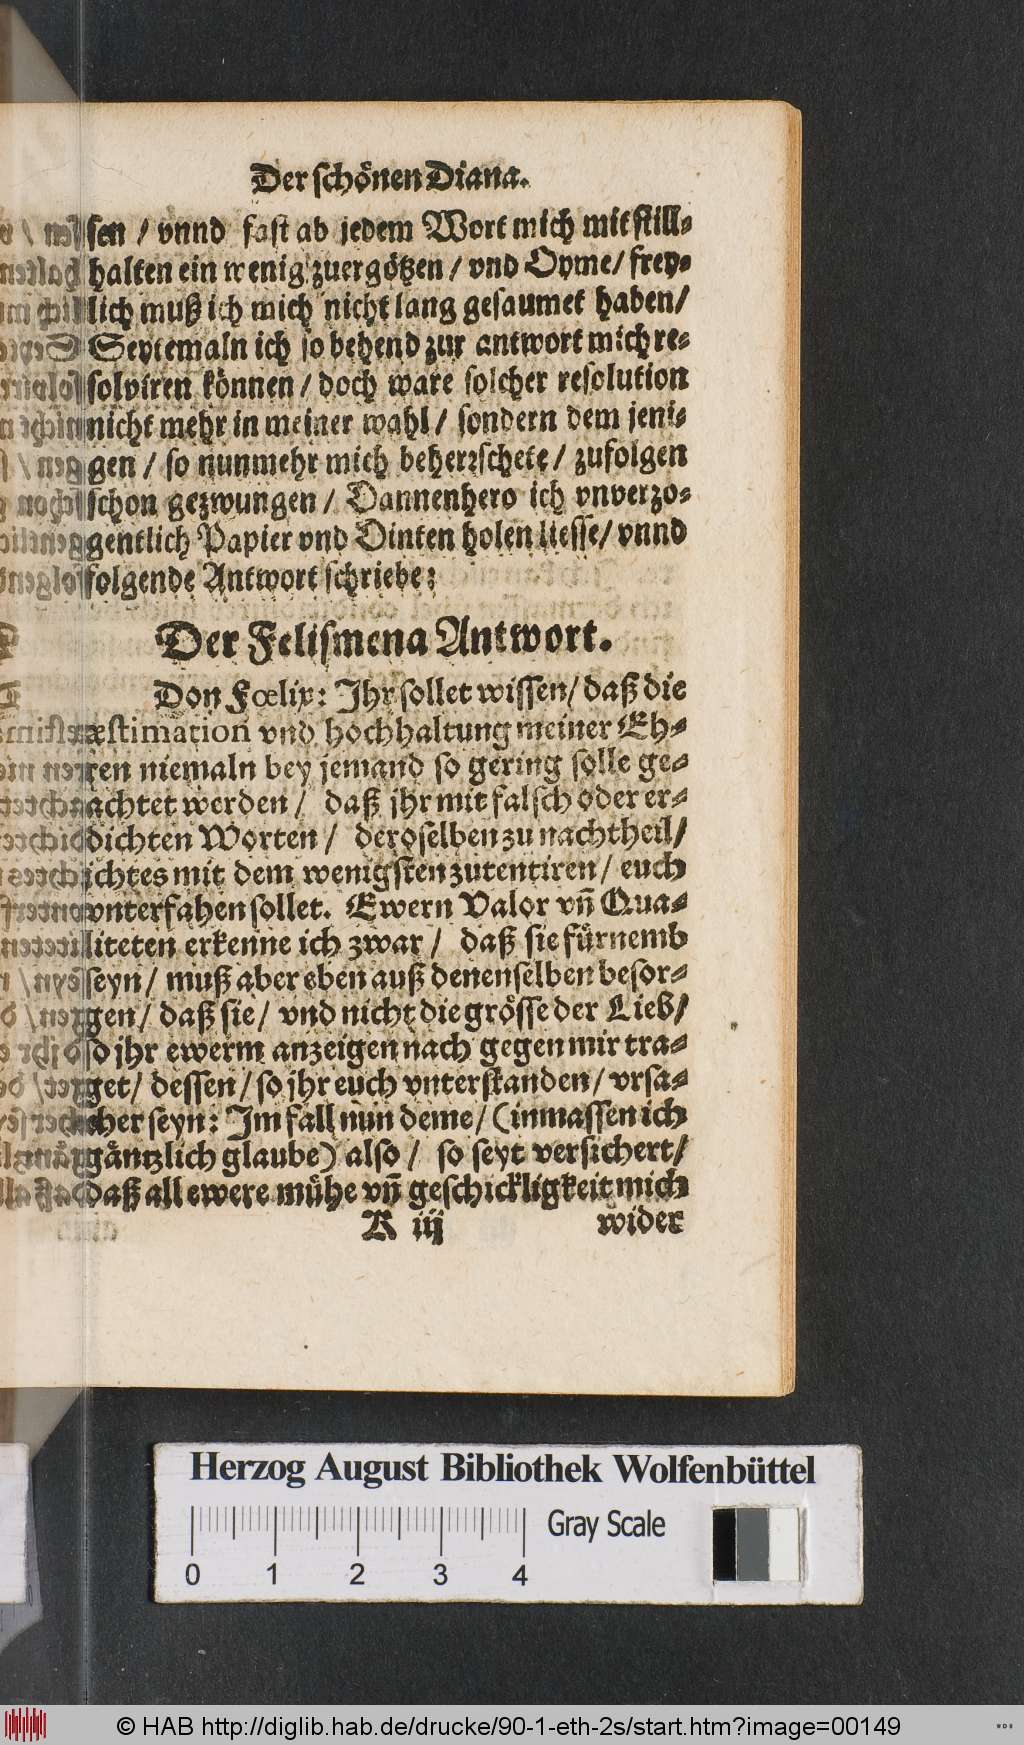 Der schönen Diana.
sen / vnnd fast ab jedem Wort mich mit still-
halten ein wenig zuergötzen / vnd Oyme / frey-
lich muß ich mich nicht lang gesaumet haben /
Seytemaln ich so behend zur antwort mich re-
solviren können / doch ware solcher resolution
nicht mehr in meiner wahl / sondern dem jeni-
gen / so nunmehr mich beherrschete / zufolgen
schon gezwungen / Dannenhero ich vnverzo-
gentlich Papier vnd Dinten holen liesse / vnnd
folgende Antwort schriebe:
Der Felismena Antwort.
Don Fœlix: Ihr sollet wissen / daß die
æstimation vnd hochhaltung meiner Eh-
ren niemaln bey jemand so gering solle ge-
achtet werden / daß jhr mit falsch oder er-
dichten Worten / deroselben zu nachtheil /
ichtes mit dem wenigsten zutentiren / euch
vnterfahen sollet. Ewern Valor vñ Qua-
liteten erkenne ich zwar / daß sie fürnemb
seyn / muß aber eben auß denenselben besor-
gen / daß sie / vnd nicht die grösse der Lieb /
so jhr ewerm anzeigen nach gegen mir tra-
get / dessen / so jhr euch vnterstanden / vrsa-
cher seyn: Im fall nun deme / (inmassen ich
gäntzlich glaube) also / so seyt versichert /
daß all ewere mühe vñ geschickligkeit mich
K iij
wider
Herzog August Bibliothek Wolfenbüttel
Gray Scale
0 1 2 3 4
© HAB http://diglib.hab.de/drucke/90-1-eth-2s/start.htm?image=00149